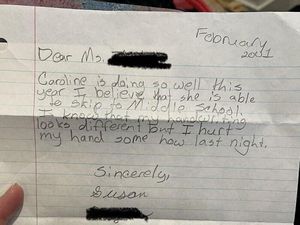 February
2001
Dear Ms.
Caroline is doing so well this
year I believe that she is able
to skip to Middle School.
I know that my handwriting
looks different but I hurt
my hand some how last night.
Sincerely,
Susan